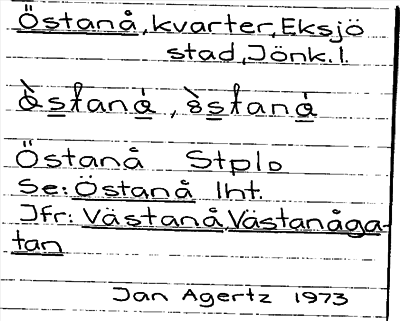 Östanå, kvarter, Eksjö
stad, Jönk. l.
Östanå Stplo
Se: Östanå Iht.
Jfr: Västanå, Västanåga-
tan
Jan Agertz 1973